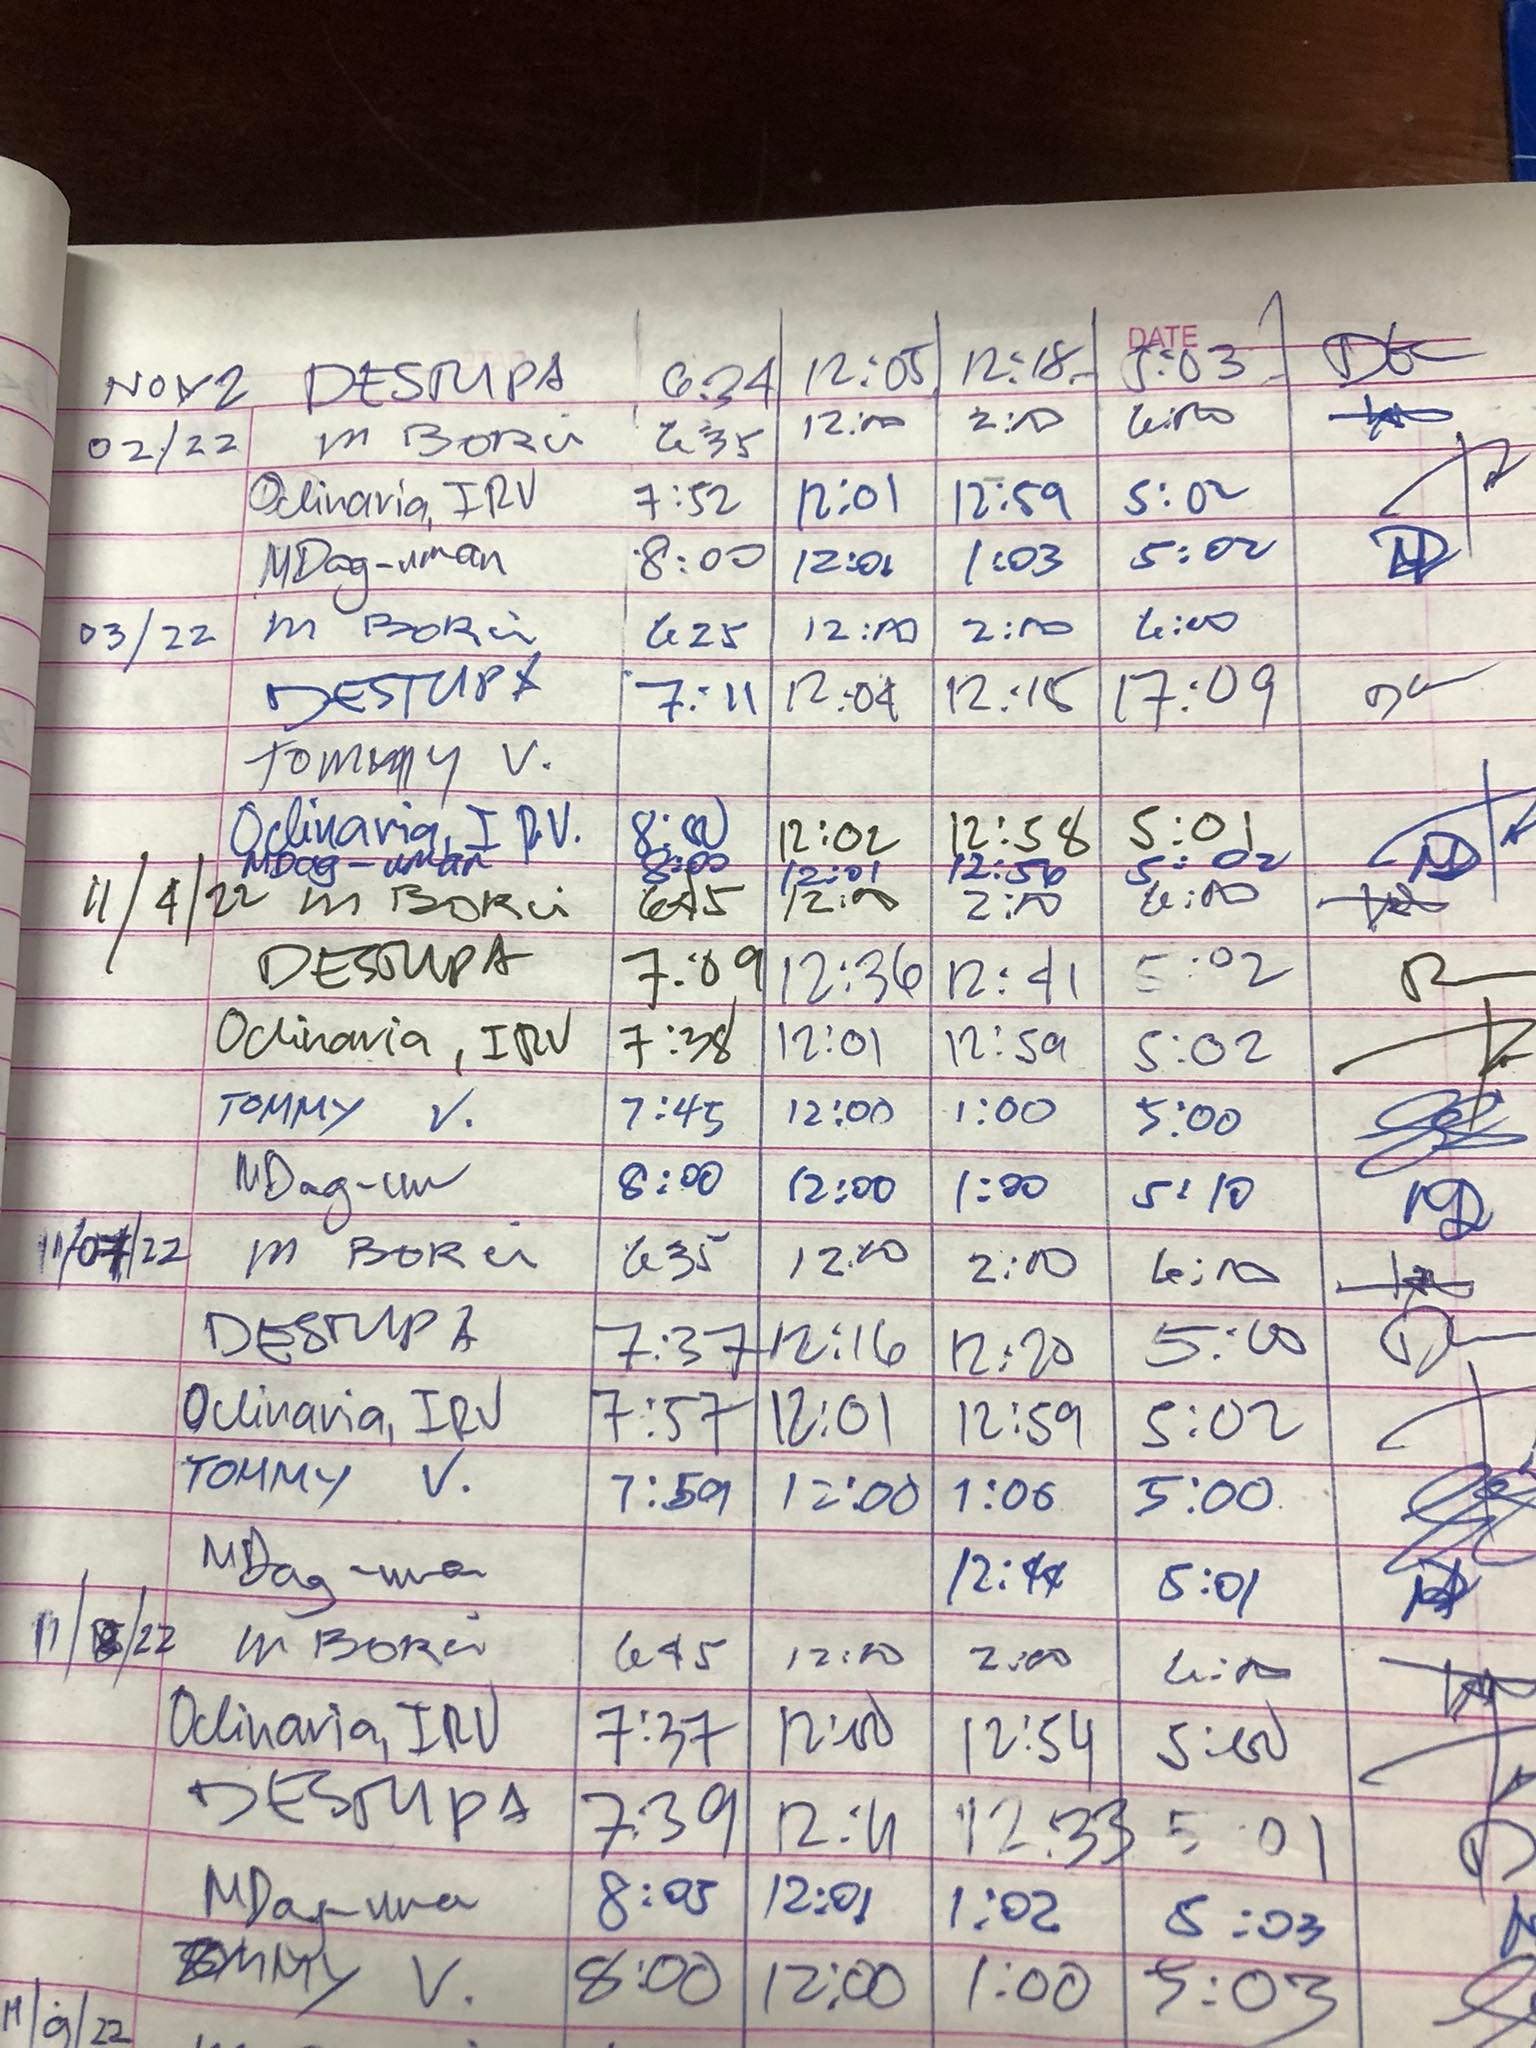 DATE
NOV 2 DESTUPA 6:24 12:05 12:18 5:03
02/22 M BORCI 635 12:00 2:00 6:00
Oclinaria, IRV 7:52 12:01 12:59 5:02
MDag-uman 8:00 12:01 1:03 5:02 MD
03/22 M BORCI 625 12:00 2:00 6:00
DESTUPA 7:11 12:04 12:15 17:09
TOMMY V.
Oclinaria, IRV. 8:00 12:02 12:58 5:01
MDag-uman 8:00 12:01 12:56 5:02 MD
11/4/22 M BORCI 645 12:00 2:00 6:00
DESTUPA 7:09 12:36 12:41 5:02
Oclinaria, IRV 7:38 12:01 12:59 5:02
TOMMY V. 7:45 12:00 1:00 5:00
MDag-um 8:00 12:00 1:00 5:10 MD
11/07/22 M BORCI 635 12:00 2:00 6:00
DESTUPA 7:37 12:16 12:20 5:00
Oclinaria, IRV 7:57 12:01 12:59 5:02
TOMMY V. 7:59 12:00 1:06 5:00
MDag-uma 12:44 5:01
11/8/22 M BORCI 645 12:00 2:00 6:00
Oclinaria, IRV 7:37 12:00 12:54 5:00
DESTUPA 7:39 12:11 12:33 5:01
MDag-uma 8:05 12:01 1:02 5:03
TOMMY V. 8:00 12:00 1:00 5:03
11/9/22